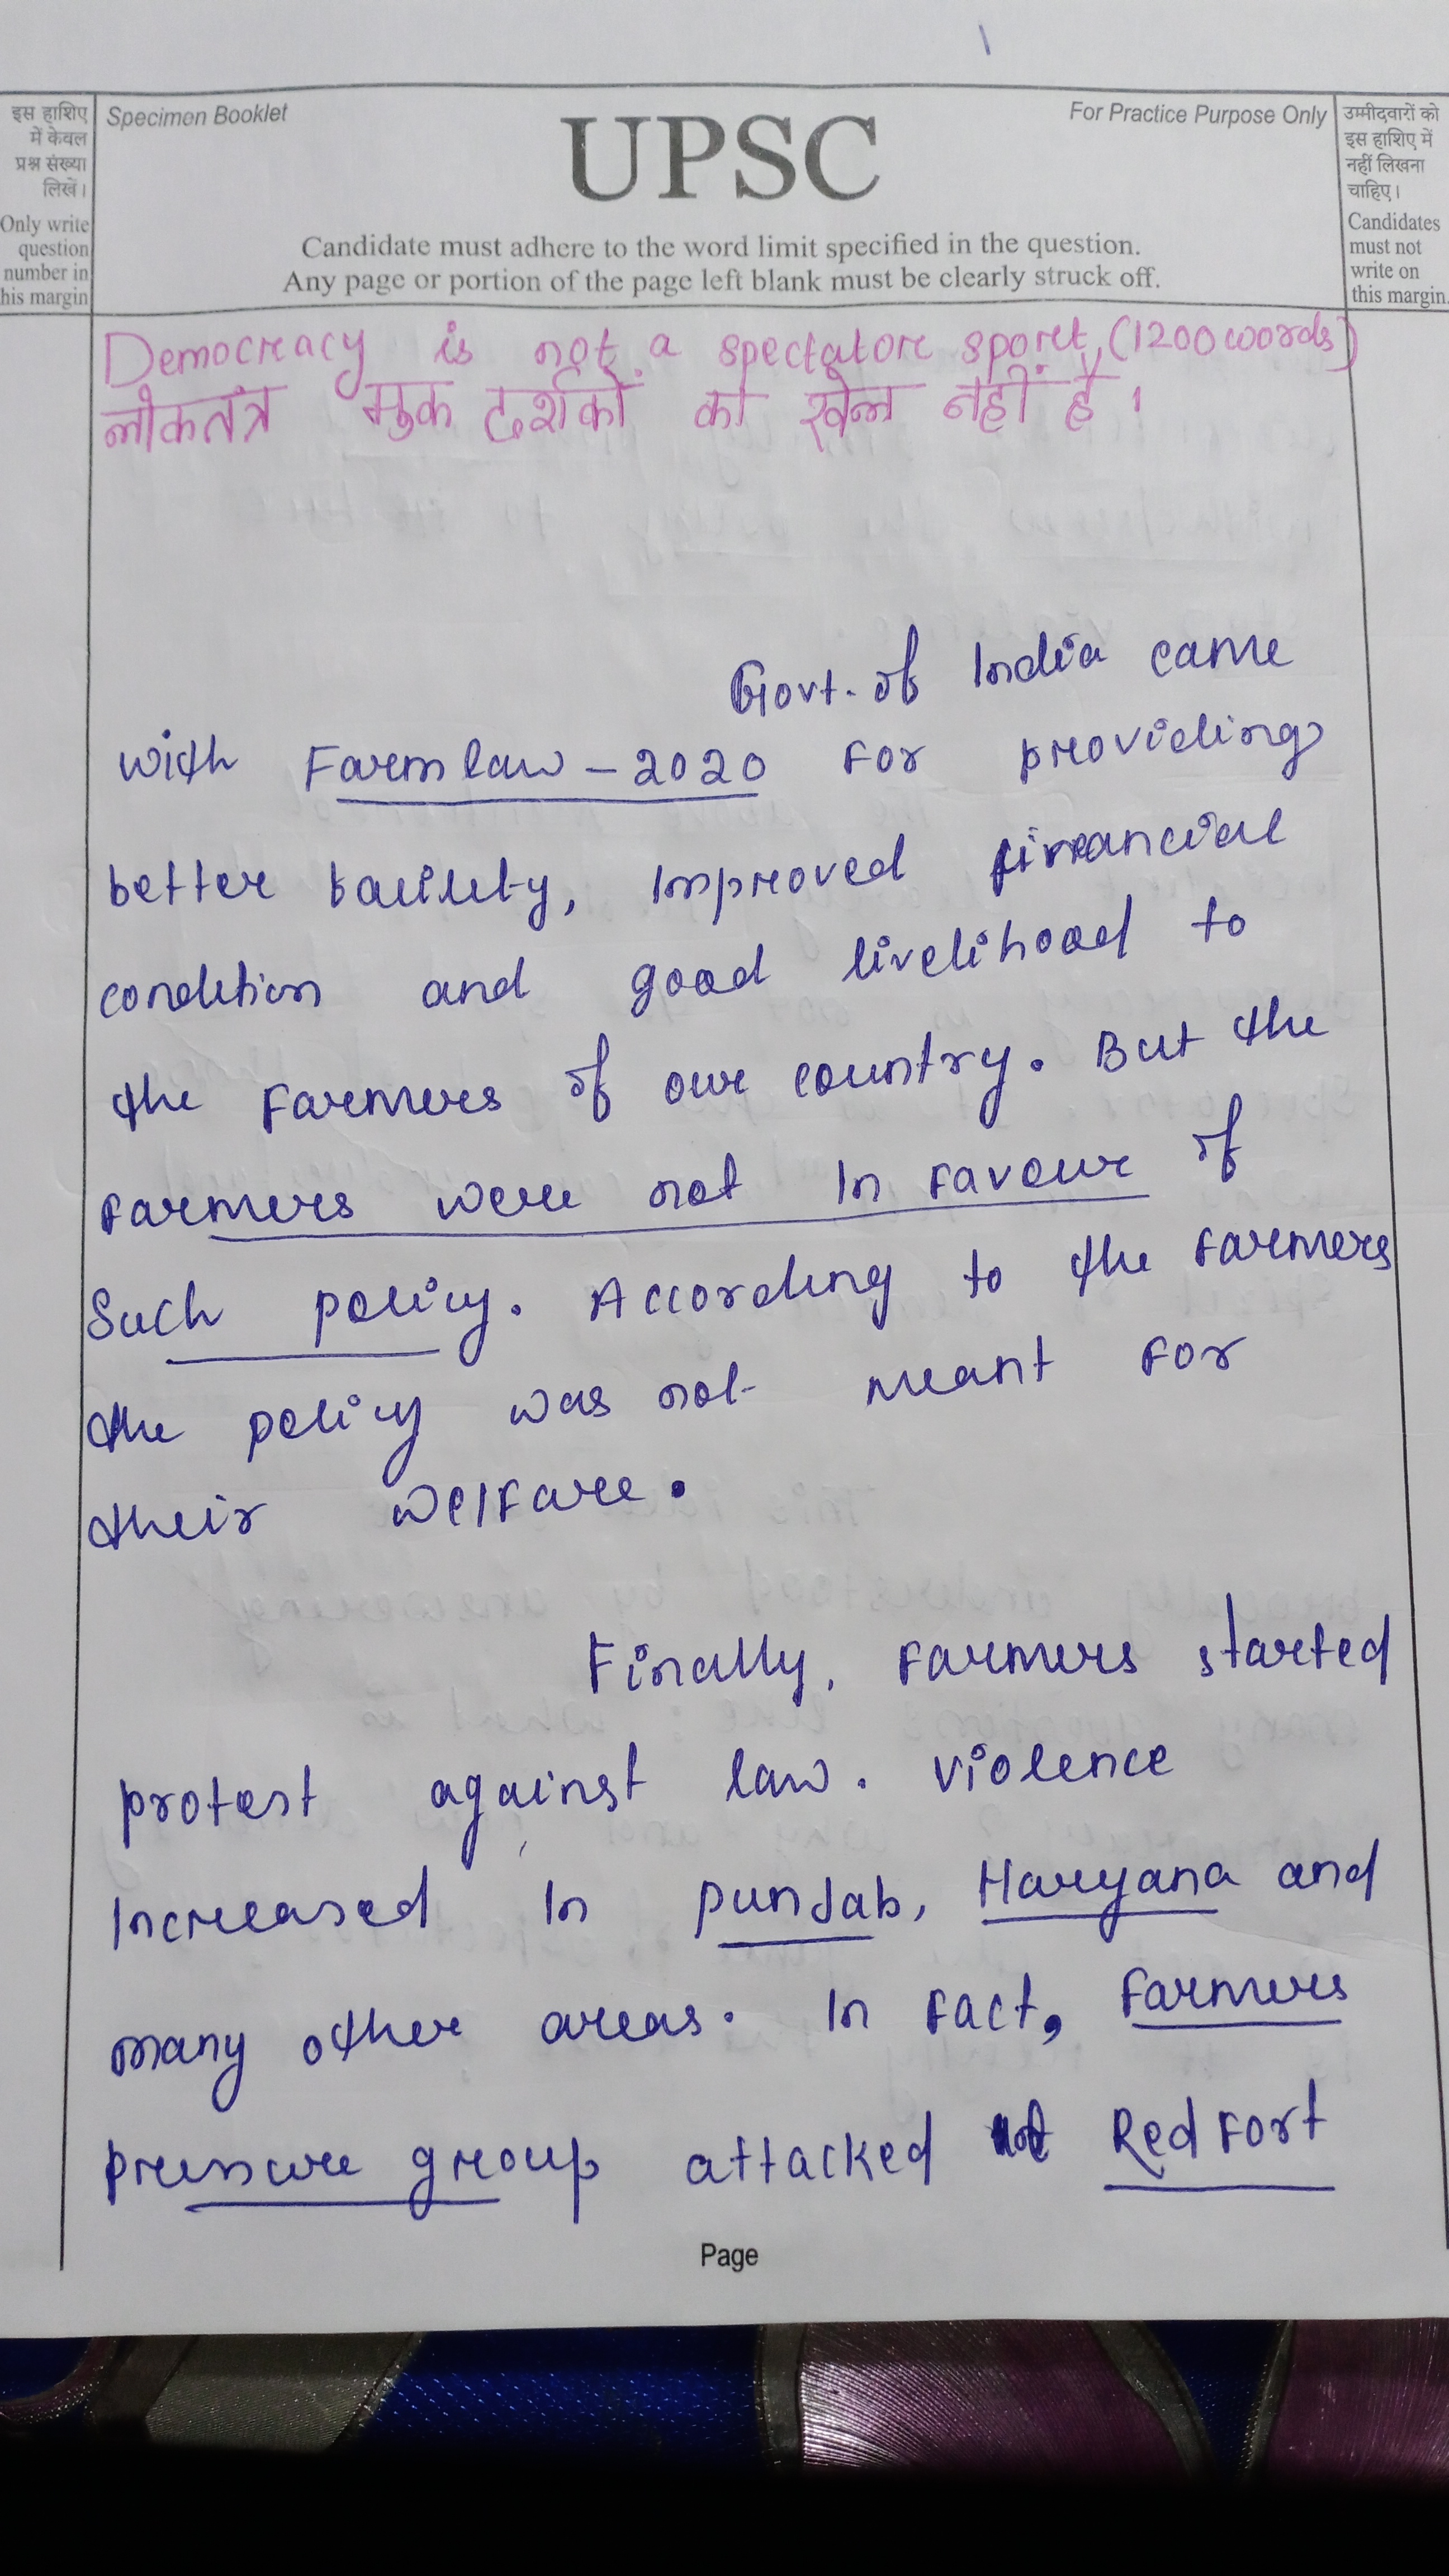 इस हाशिए
में केवल
प्रश्न संख्या
लिखें।
Only write
question
number in
his margin
Specimen Booklet
UPSC
For Practice Purpose Only
Candidate must adhere to the word limit specified in the question.
Any page or portion of the page left blank must be clearly struck off.
उम्मीदवारों को
इस हाशिए में
नहीं लिखना
चाहिए।
Candidates
must not
write on
this margin.
Democracy is not a spectator sport. (1200 words)
लोकतंत्र मुक दर्शकों का खेल नहीं है।
Govt. of India came
with Farm law - 2020 for providing
better facility, Improved financial
condition and good livelihood to
the farmers of our country. But the
farmers were not In favour of
Such policy. According to the farmers
the policy was not meant for
their welfare.
Finally, farmers started
protest against law. violence
Increased In punjab, Haryana and
many other areas. In fact, farmers
pressure group attacked Red Fort
Page